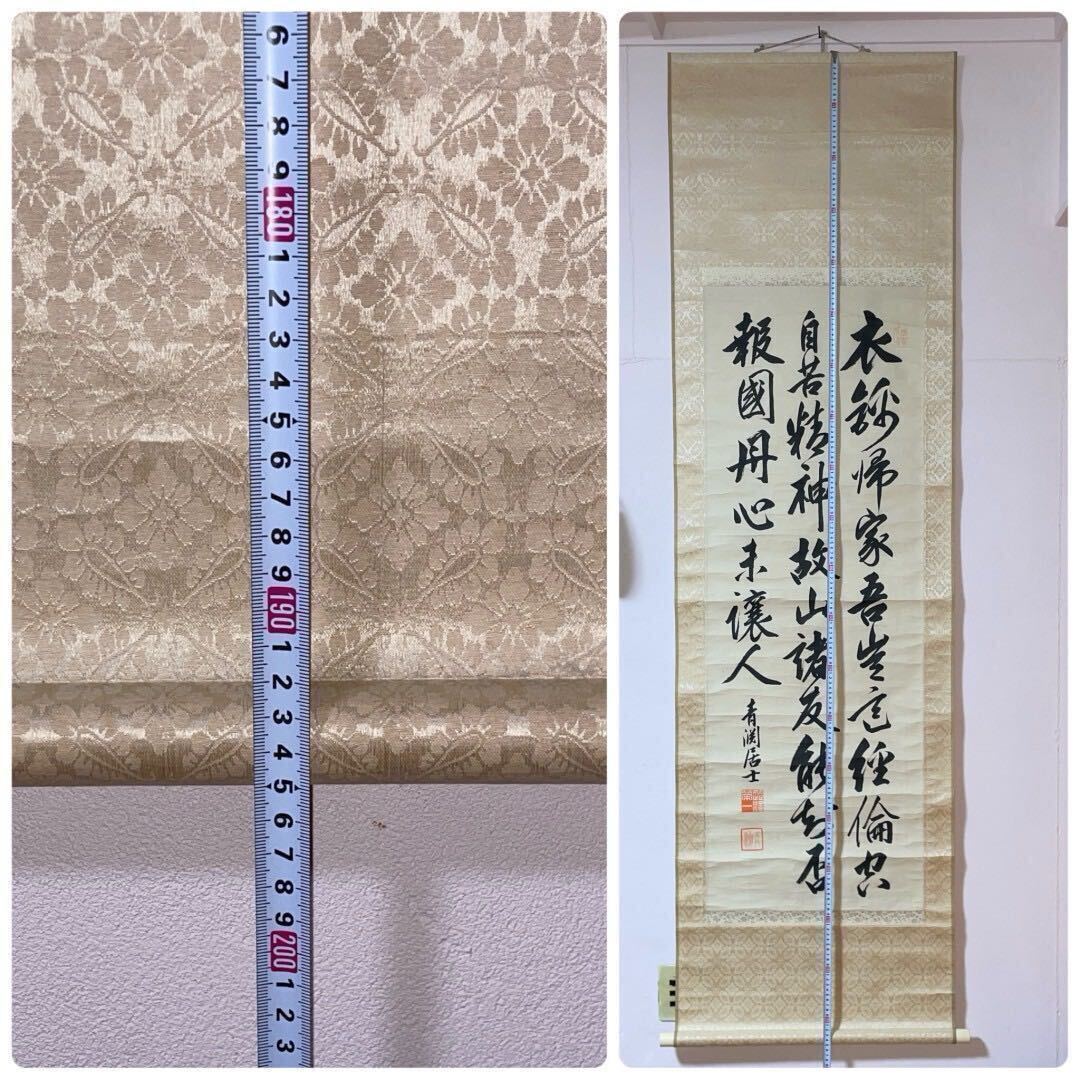 6
7
8
9
180
1
2
3
4
5
6
7
8
9
190
1
2
3
4
5
6
7
8
9
200
1
2
3
衣錦帰家吾豈經倫空
自苦精神故山諸友能知否
報國丹心未讓人
青淵居士